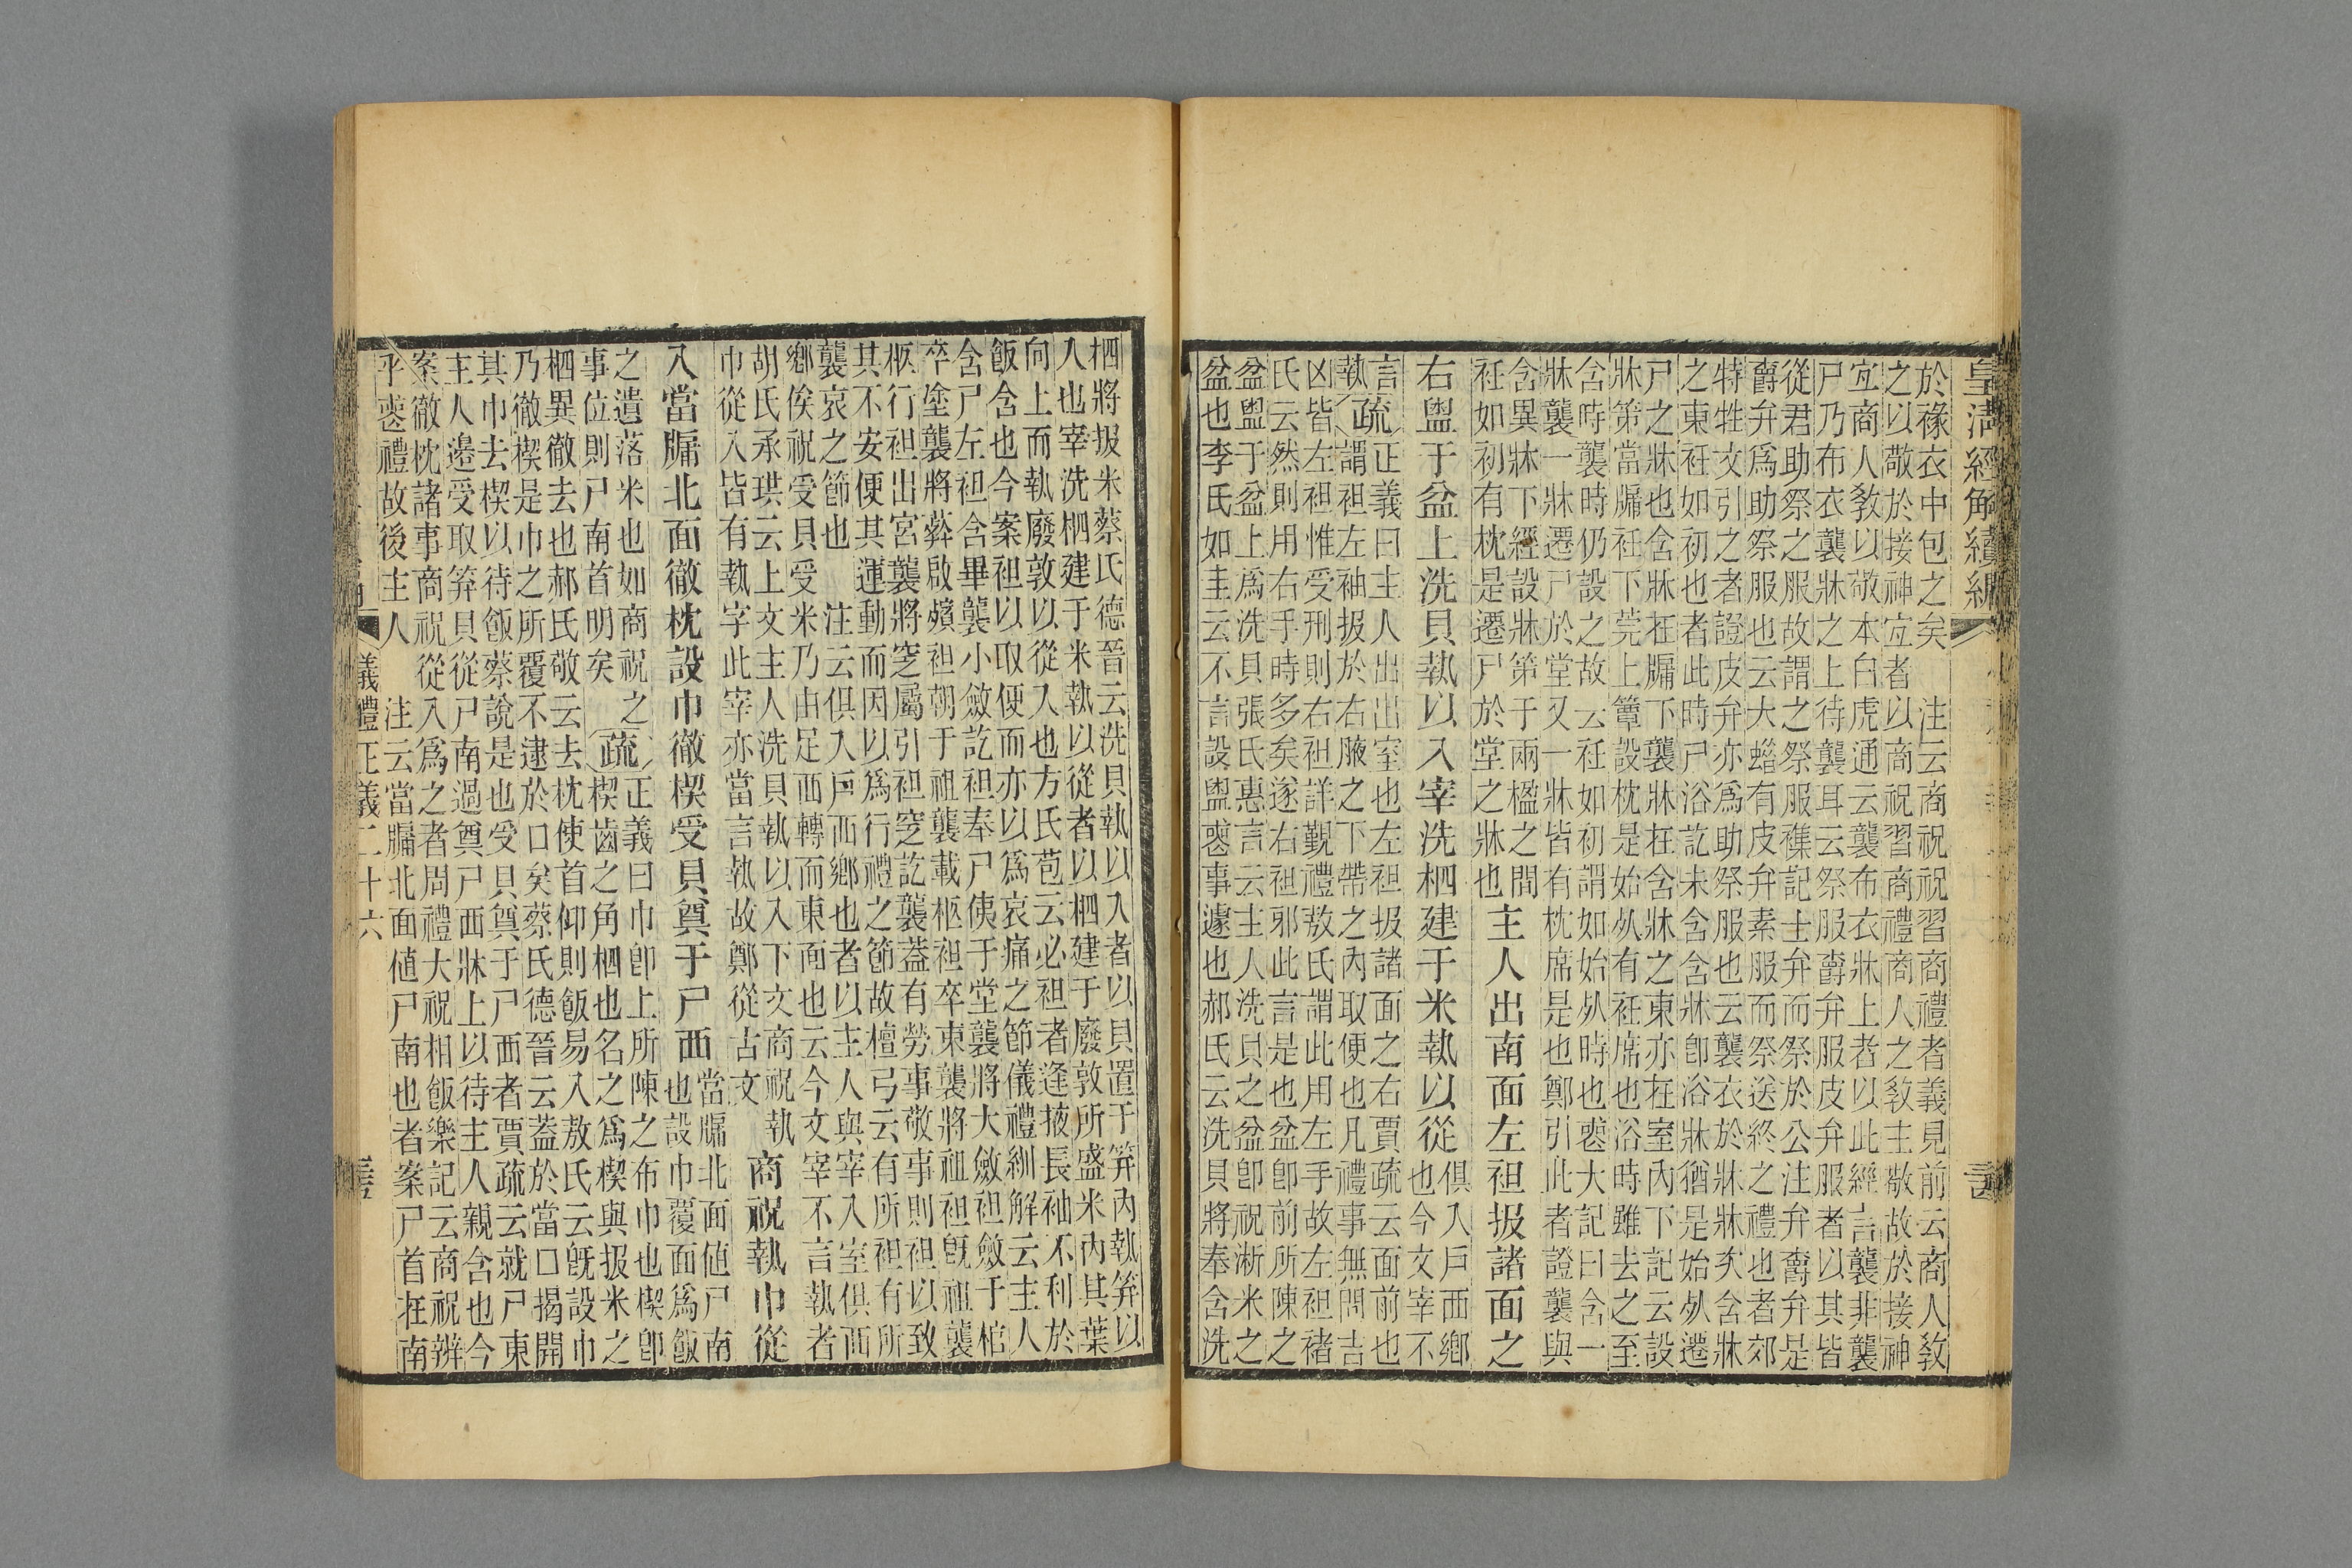 皇清經解續編
於褖衣中包之矣　注云商祝祝習商禮者義見前云商人教
之以敬於接神宜者以商祝習商禮商人之教主敬故於接神
宜商人教以敬本白虎通云襲布衣牀上者以此經言襲非襲
尸乃布衣襲牀之上待襲耳云祭服爵弁服皮弁服者以其皆
從君助祭之服故謂之祭服襍記士弁而祭於公注弁爵弁是
爵弁爲助祭服也云大蜡有皮弁素服而祭送終之禮也者郊
特牲文引之者證皮弁亦爲助祭服也云襲衣於牀牀矣含牀
之東衽如初也者此時尸浴訖未含含牀卽浴牀猶是始死遷
尸之牀也含牀在牖下襲牀在含牀之東亦在室內下記云設
牀第當牖衽下莞上簟設枕是始死有衽席也浴時雖去之至
含時襲時仍設之故云衽如初謂如始死時也䘮大記曰含一
牀襲一牀遷尸於堂又一牀皆有枕席是也鄭引此者證襲與
含異牀下經設牀第于兩楹之閒
衽如初有枕是遷尸於堂之牀也
主人出南面左袒扱諸面之
右盥于盆上洗貝執以入宰洗柶建于米執以從
俱入戶西鄉
也今文宰不
言
執
疏
正義曰主人出出室也左袒扱諸面之右賈疏云面前也
謂袒左袖扱於右腋之下帶之內取便也凡禮事無問吉
凶皆左袒惟受刑則右袒詳覲禮敖氏謂此用左手故左袒褚
氏云然則用右手時多矣遂右袒邪此言是也盆卽前所陳之
盆盥于盆上爲洗貝張氏惠言云主人洗貝之盆卽祝淅米之
盆也李氏如圭云不言設盥䘮事遽也郝氏云洗貝將奉含洗
柶將扱米蔡氏德晉云洗貝執以入者以貝置于笲內執笲以
入也宰洗柶建于米執以從者以柶建于廢敦所盛米內其葉
向上而執廢敦以從入也方氏苞云必袒者逢掖長袖不利於
飯含也今案袒以取便而亦以爲哀痛之節儀禮紃解云主人
含尸左袒含畢襲小斂訖袒奉尸侇于堂襲將大斂袒斂于棺
卒塗襲將葬啟殯袒朝于祖襲載柩袒卒束襲將祖袒旣祖襲
柩行袒出宮襲將窆屬引袒窆訖襲葢有勞事敬事則袒以致
其不安便其運動而因以爲行禮之節故檀弓云有所袒有所
襲哀之節也　注云俱入戶西鄉也者以主人與宰入室俱西
鄉俟祝受貝受米乃由足西轉而東面也云今文宰不言執者
胡氏承珙云上文主人洗貝執以入下文商祝執
巾從入皆有執字此宰亦當言執故鄭從古文
商祝執巾從
入當牖北面徹枕設巾徹楔受貝奠于尸西
當牖北面値尸南
也設巾覆面爲飯
之遺落米也如商祝之
事位則尸南首明矣
疏
正義曰巾卽上所陳之布巾也楔卽
楔齒之角柶也名之爲楔與扱米之
柶異徹去也郝氏敬云去枕使首仰則飯易入敖氏云旣設巾
乃徹楔是巾之所覆不逮於口矣蔡氏德晉云葢於當口揭開
其巾去楔以待飯蔡說是也受貝奠于尸西者賈疏云就尸東
主人邊受取笲貝從尸南過奠尸西牀上以待主人親含也今
案徹枕諸事商祝從入爲之者周禮大祝相飯樂記云商祝辨
乎䘮禮故後主人　注云當牖北面値尸南也者案尸首在南
儀禮正義二十六